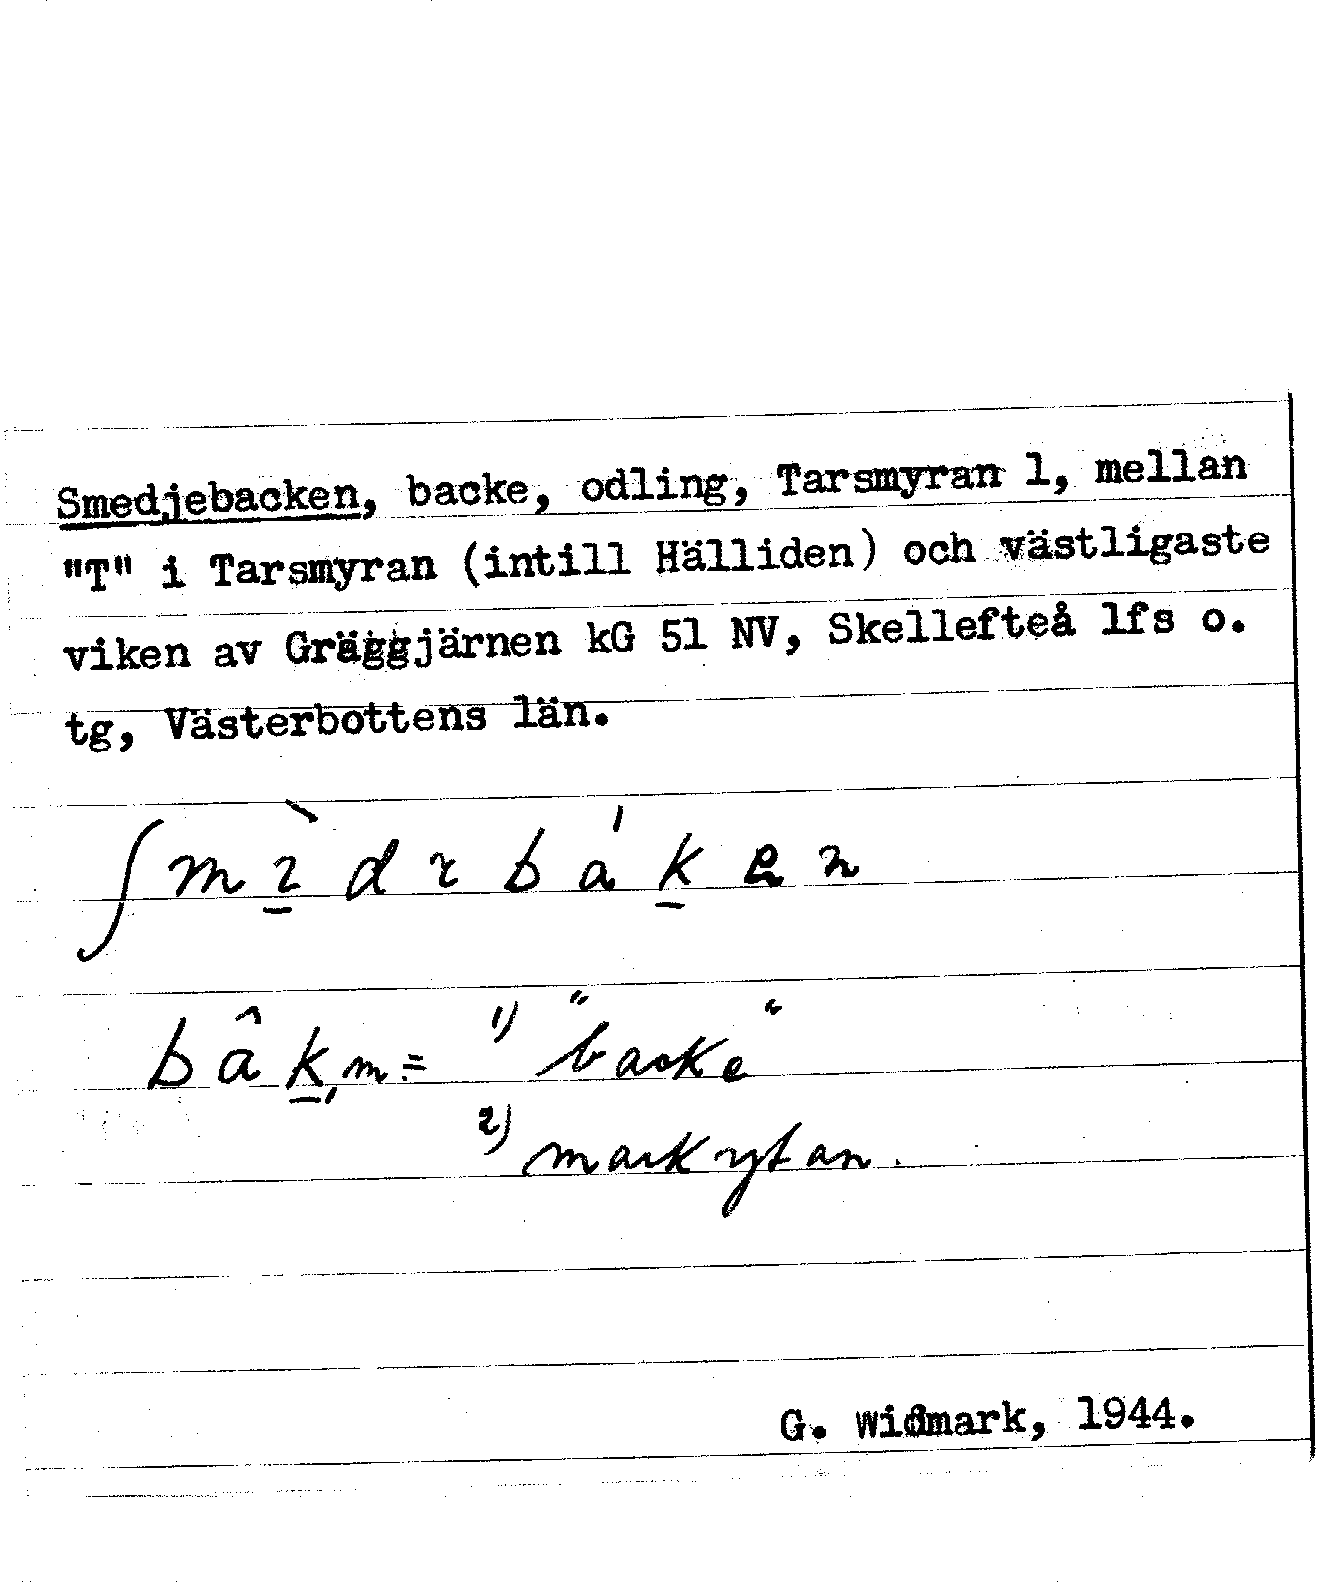 Smedjebacken, backe, odling, Tarsmyran 1, mellan
"T" i Tarsmyran (intill Hälliden) och västligaste
viken av Gräggjärnen kG 51 NV, Skellefteå lfs o.
tg, Västerbottens län.
1) "backe"
2) markytan.
G. Widmark, 1944.